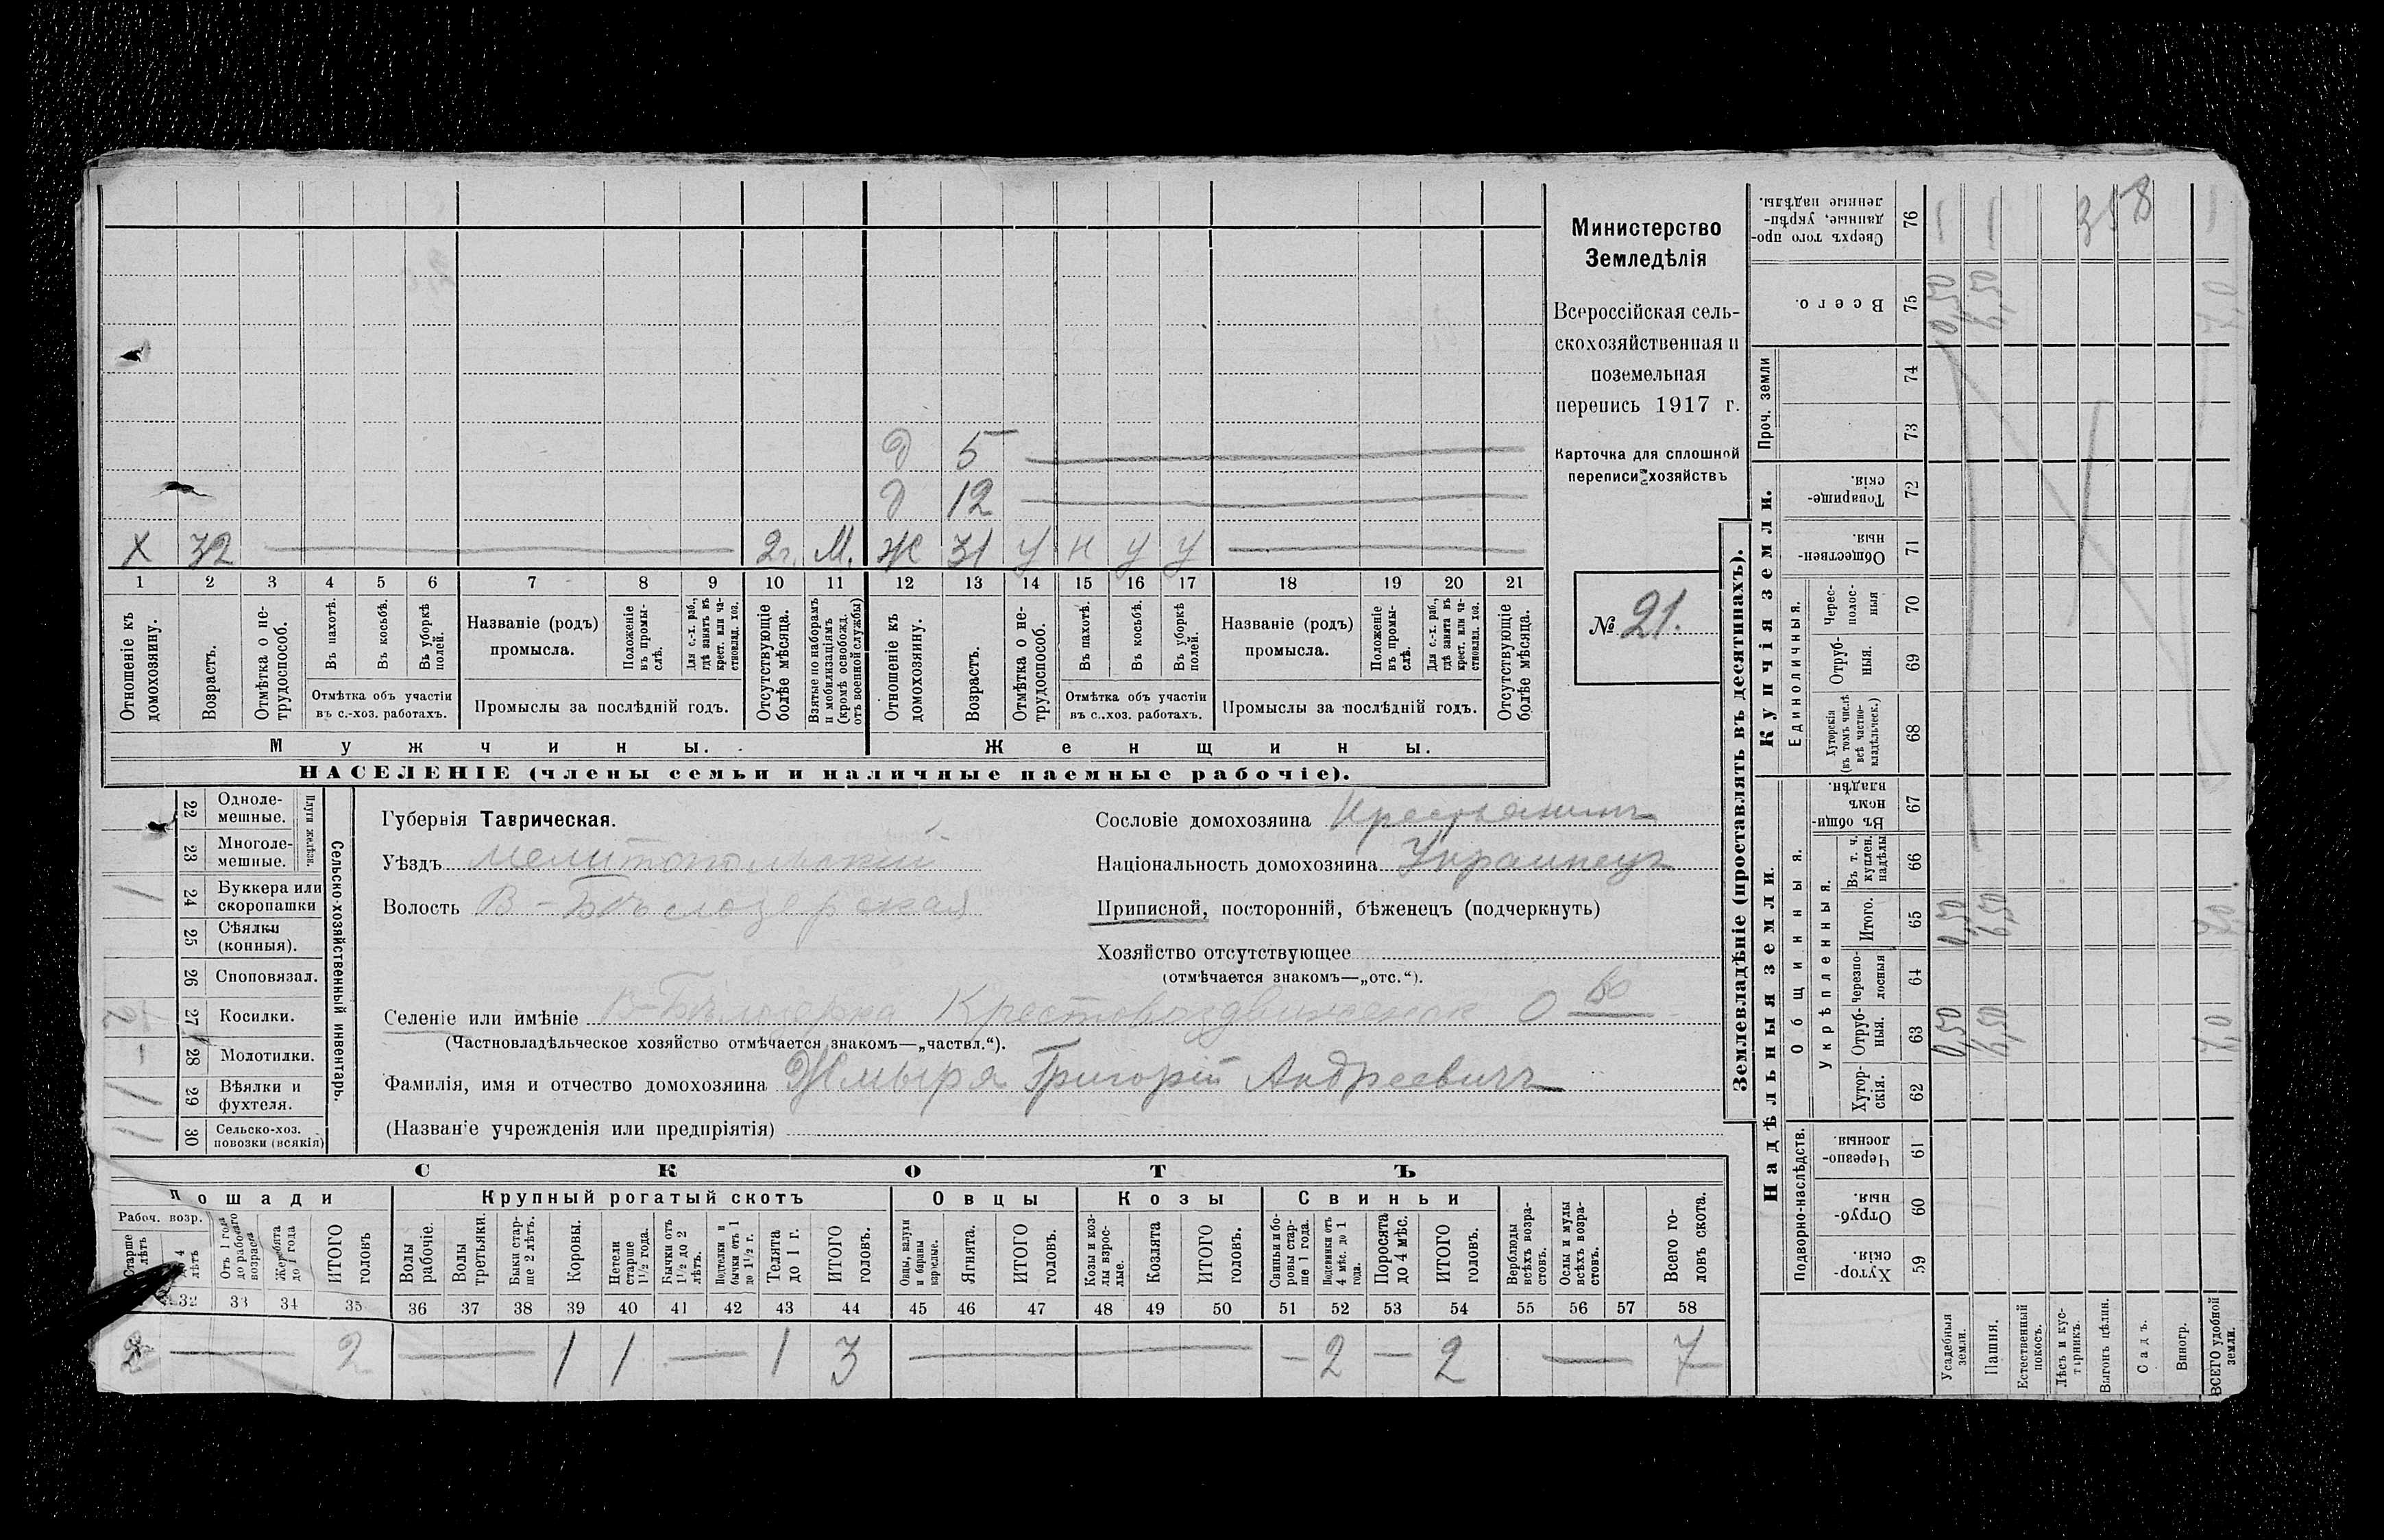 Министерство
Земледѣлія
Всероссійская сель-
скохозяйственная и
поземельная
перепись 1917 г.
Карточка для сплошной
переписи хозяйствъ
№ 21.
Д 5
Д 12
Х 32 2 г. М. Ж 31 У Н У У
1 2 3 4 5 6 7 8 9 10 11 12 13 14 15 16 17 18 19 20 21
Отношеніе къ домохозяину.
Возрастъ.
Отмѣтка о не-трудоспособ.
Въ пахотѣ.
Въ косьбѣ.
Въ уборкѣ полей.
Отмѣтка объ участіи
въ с.-хоз. работахъ.
Названіе (родъ)
промысла.
Положеніе въ промы-слѣ.
Для с.-х. раб., гдѣ занятъ въ крест. или ча-стновлад. хоз.
Промыслы за послѣдній годъ.
Отсутствующіе болѣе мѣсяца.
Взятые по наборамъ и мобилизаціямъ (кромѣ освобожд. отъ военной службы)
Отношеніе къ домохозяину.
Возрастъ.
Отмѣтка о не-трудоспособ.
Въ пахотѣ.
Въ косьбѣ.
Въ уборкѣ полей.
Отмѣтка объ участіи
въ с..хоз. работахъ.
Названіе (родъ)
промысла.
Положеніе въ промы-слѣ.
Для с.-х. раб., гдѣ занята въ крест. или ча-стновлад. хоз.
Промыслы за послѣдній годъ.
Отсутствующіе болѣе мѣсяца.
Мужчины.
Женщины.
НАСЕЛЕНІЕ (члены семьи и наличные наемные рабочіе).
22 Одноле-мешные.
23 Многоле-мешные.
Плуги желѣзн.
24 Буккера или скоропашки 1
25 Сѣялки (конныя).
26 Споповязал.
27 Косилки.
28 Молотилки. -
29 Вѣялки и фухтеля. 1
30 Сельско-хоз. повозки (всякія) 1
Сельско-хозяйственный инвентарь.
Губернія Таврическая.
Уѣздъ Мелитопольскій
Волость В-Бѣлозерская
Сословіе домохозяина Крестьянинъ
Національность домохозяина Украинецъ
Приписной, посторонній, бѣженецъ (подчеркнуть)
Хозяйство отсутствующее
(отмѣчается знакомъ—„отс.“).
Селеніе или имѣніе В-Бѣлозерка Крестовоздвиженск О во
(Частновладѣльческое хозяйство отмѣчается знакомъ—„частвл.“).
Фамилія, имя и отчество домохозяина Жмыря Григорій Андреевичъ
(Названіе учрежденія или предпріятія)
СКОТЪ
Лошади
Крупный рогатый скотъ
Овцы
Козы
Свиньи
Рабоч. возр.
Старше лѣтъ
4 лѣтъ
Отъ 1 года до рабочаго возраста
Жеребята до 1 года
ИТОГО головъ
Волы рабочіе.
Волы третьяки.
Быки стар-ше 2 лѣтъ.
Коровы.
Нетели старше 1½ года.
Бычки отъ 1½ до 2 лѣтъ.
Подтелки и бычки отъ 1 до 1½ г.
Телята до 1 г.
ИТОГО головъ.
Овцы, валухи и бараны взрослые.
Ягнята.
ИТОГО головъ.
Козы и коз-лы взрос-лые.
Козлята
ИТОГО головъ.
Свиньи и бо-ровы стар-ше 1 года.
Подсвинки отъ 4 мѣс. до 1 года.
Поросята до 4 мѣс.
ИТОГО головъ.
Верблюды всѣхъ возра-стовъ.
Ослы и мулы всѣхъ возра-стовъ.
Всего го-ловъ скота.
32 33 34 35 36 37 38 39 40 41 42 43 44 45 46 47 48 49 50 51 52 53 54 55 56 57 58
2 — 2 — 1 1 — 1 3 — — 2 — 2 — 7
Землевладѣніе (проставлять въ десятинахъ).
Надѣльныя земли.
Купчія земли.
Проч. земли
Подворно-наслѣдств.
Общинныя.
Укрѣпленныя.
Единоличныя.
Хутор-скія. 59
Отруб-ныя. 60
Черезпо-лосныя. 61
Хутор-скія. 62
Отруб-ныя. 63
Черезпо-лосныя 64
Итого. 65
Въ т. ч. куплен. надѣлы 66
Въ общин-номъ владѣн. 67
Хуторскія (въ томъ числѣ всѣ частно-владѣльческ.) 68
Отруб-ныя. 69
Черес-полос-ныя 70
Обществен-ныя. 71
Товарище-скія. 72
73
74
Всего. 75
Сверхъ того про-данные, укрѣп-ленные надѣлы. 76
Усадебныя земли. 0,50 0,50 0,50
Пашня. 6,50 6,50 6,50
Естественный покосъ.
Лѣсъ и кус-тарникъ.
Выгонъ цѣлин.
Садъ.
Виногр.
ВСЕГО удобной земли. 7,0 7,0
358